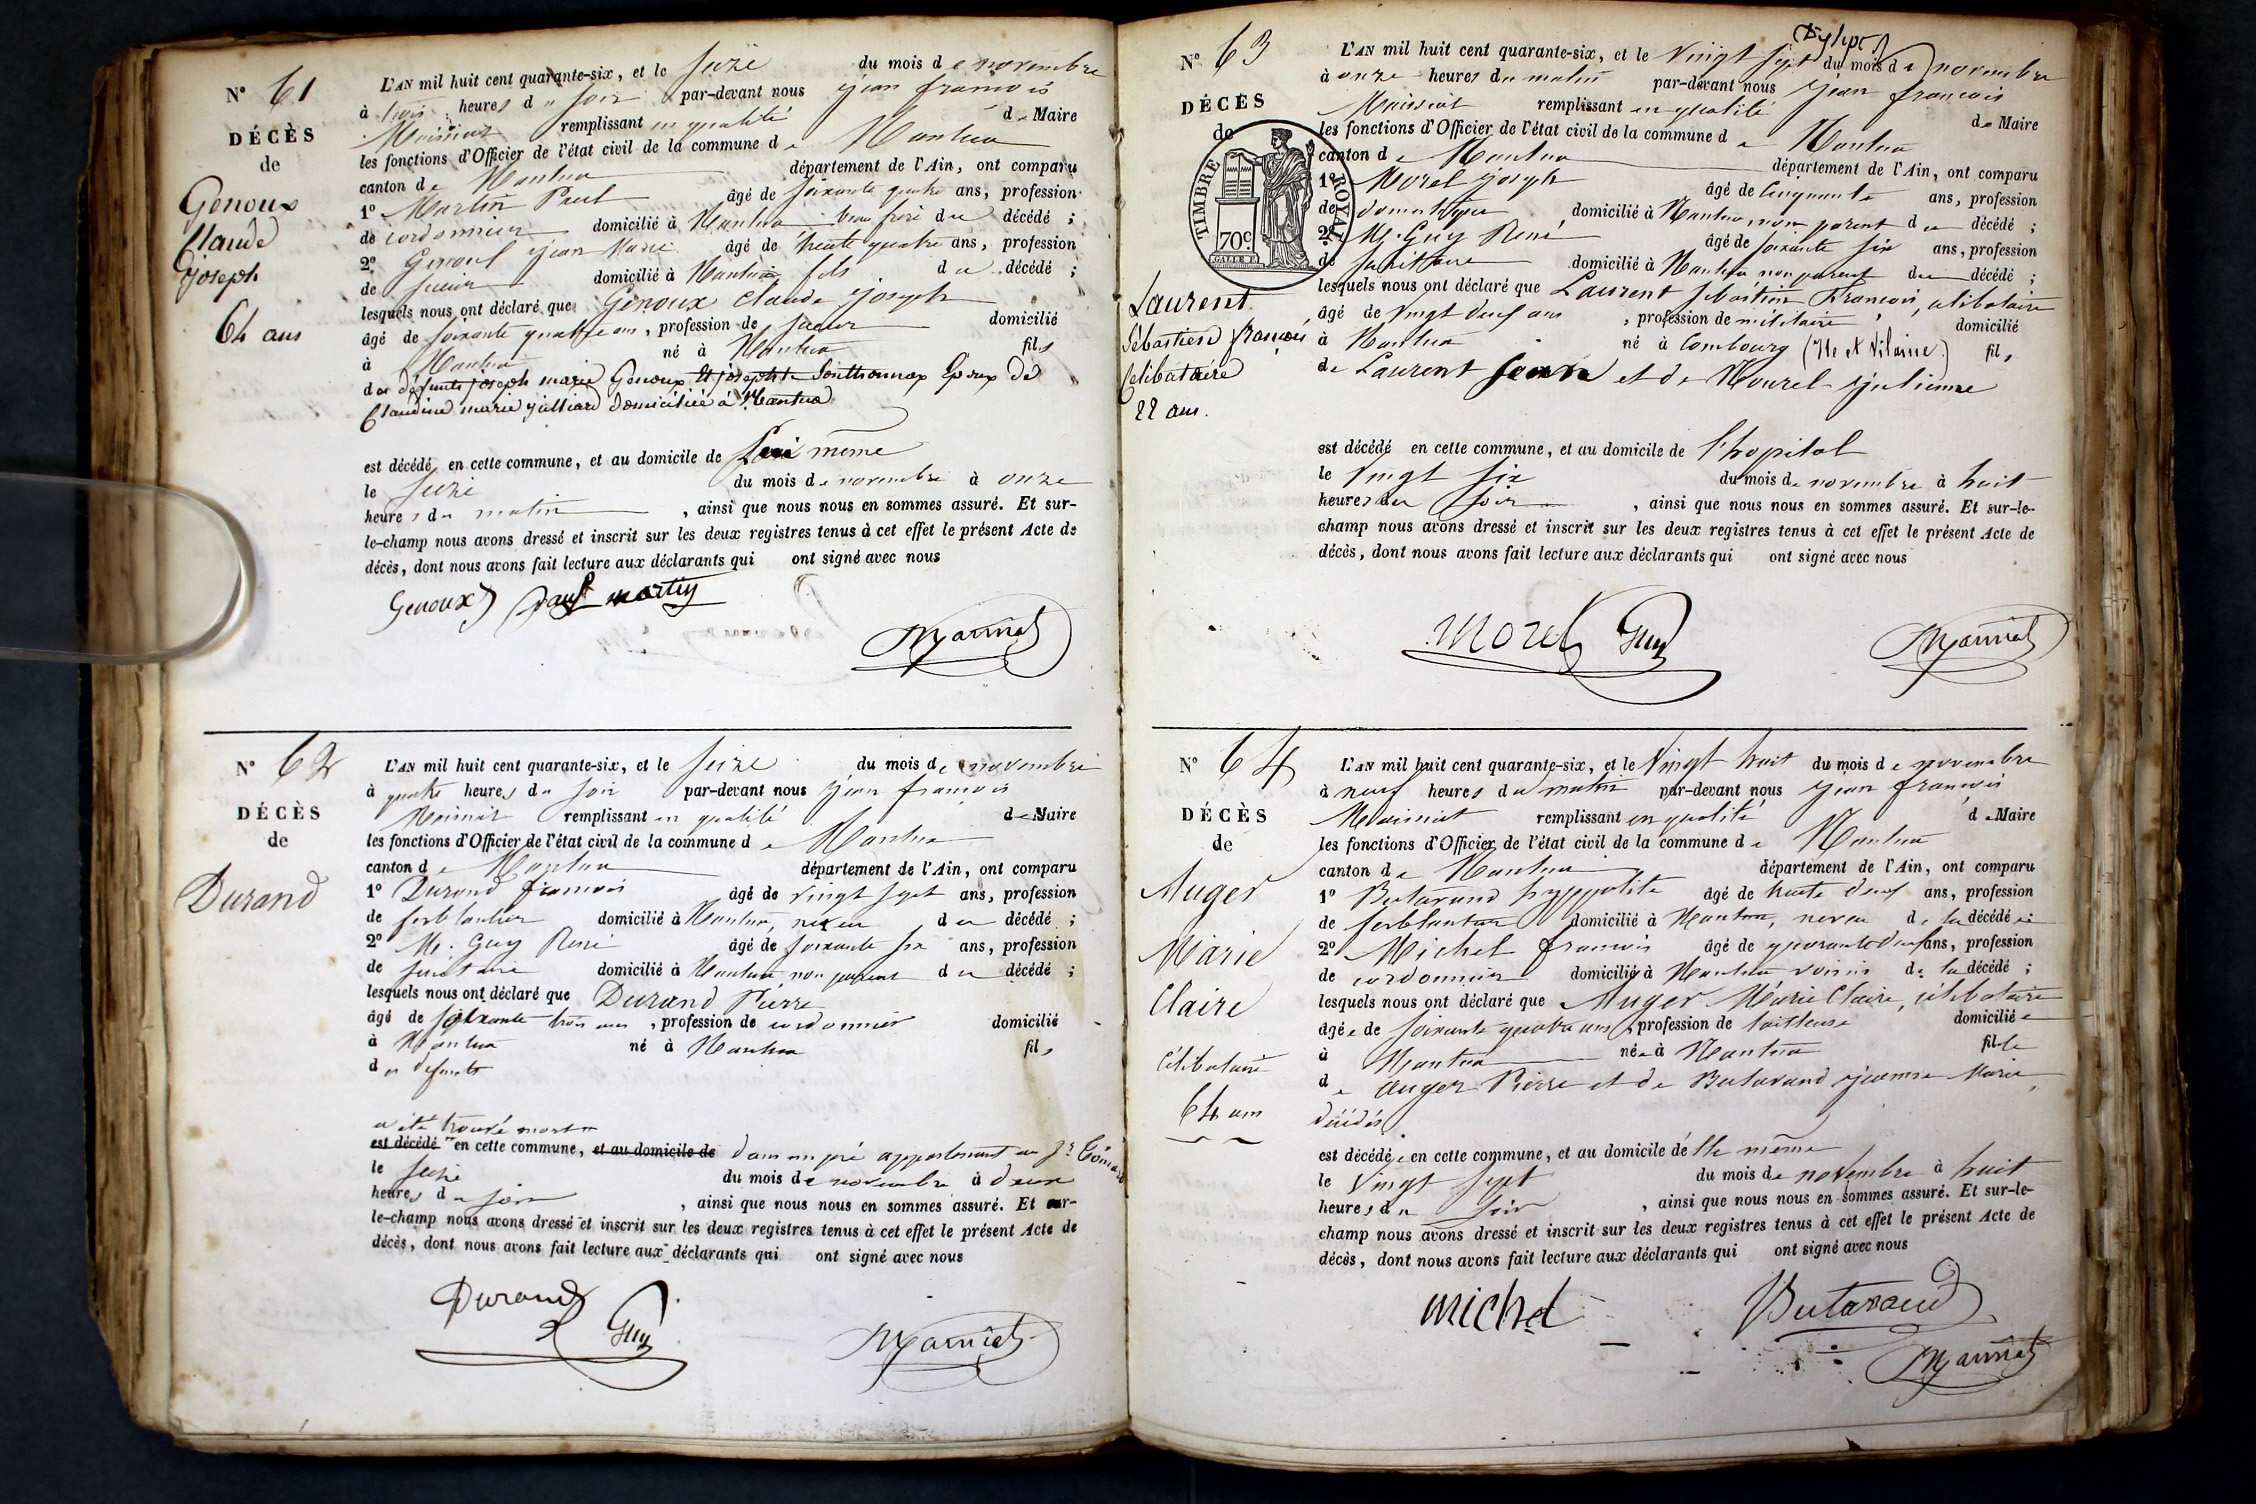 N° 61
DÉCÈS
de
Genoux
Claude
Joseph
64 ans
L'AN mil huit cent quarante-six, et le seize du mois de novembre
à trois heures du soir par-devant nous jean françois
remplissant en qualité de Maire
les fonctions d'Officier de l'état civil de la commune de Nantua
canton de Nantua département de l'Ain, ont comparu
1° Martin Paul âgé de soixante quatre ans, profession
de cordonnier domicilié à Nantua beau frère du décédé ;
2° Genoux jean Marie âgé de trente quatre ans, profession
de domicilié à Nantua fils du décédé ;
lesquels nous ont déclaré que Genoux Claude joseph
âgé de soixante quatre ans, profession de domicilié
à Nantua né à Nantua fils
des défunts joseph marie Genoux et josephte Époux de
Claudine marie juilliard domiciliée à Nantua
est décédé en cette commune, et au domicile de Lui même
le seize du mois de novembre à onze
heures du matin, ainsi que nous nous en sommes assuré. Et sur-
le-champ nous avons dressé et inscrit sur les deux registres tenus à cet effet le présent Acte de
décès, dont nous avons fait lecture aux déclarants qui ont signé avec nous
Genoux paul martin
N° 62
DÉCÈS
de
Durand
L'AN mil huit cent quarante-six, et le seize du mois de novembre
à quatre heures du soir par-devant nous jean françois
remplissant en qualité de Maire
les fonctions d'Officier de l'état civil de la commune de Nantua
canton de Nantua département de l'Ain, ont comparu
1° Durand françois âgé de vingt sept ans, profession
de ferblantier domicilié à Nantua, neveu du décédé ;
2° Mr. Guy René âgé de soixante six ans, profession
de domicilié à Nantua non parent du décédé ;
lesquels nous ont déclaré que Durand Pierre
âgé de soixante trois ans, profession de cordonnier domicilié
à Nantua né à Nantua fils
des defunts
a été trouvé mort
est décédé en cette commune, et au domicile de dans un pré appartenant au
le seize du mois de novembre à deux
heures du soir, ainsi que nous nous en sommes assuré. Et sur-
le-champ nous avons dressé et inscrit sur les deux registres tenus à cet effet le présent Acte de
décès, dont nous avons fait lecture aux déclarants qui ont signé avec nous
Durand Guy
N° 63
DÉCÈS
de
TIMBRE ROYAL
70c.
Laurent
Sébastien françois
Celibataire
22 ans.
L'AN mil huit cent quarante-six, et le Vingt sept du mois de novembre
à onze heures du matin par-devant nous jean françois
remplissant en qualité de Maire
les fonctions d'Officier de l'état civil de la commune de Nantua
canton de Nantua département de l'Ain, ont comparu
1° Morel joseph âgé de Cinquante ans, profession
de domestique domicilié à Nantua, non parent du décédé ;
2° Mr. Guy René âgé de soixante six ans, profession
de domicilié à Nantua non parent du décédé ;
lesquels nous ont déclaré que Laurent Sébastien François, célibataire
âgé de vingt deux ans, profession de militaire, domicilié
à Nantua né à Combourg (Ille et Vilaine) fils
de Laurent et de Hourel julienne
est décédé en cette commune, et au domicile de l'hopital
le vingt six du mois de novembre à huit
heures du soir, ainsi que nous nous en sommes assuré. Et sur-le-
champ nous avons dressé et inscrit sur les deux registres tenus à cet effet le présent Acte de
décès, dont nous avons fait lecture aux déclarants qui ont signé avec nous
Morel Guy
N° 64
DÉCÈS
de
Auger
Marie
Claire
célibataire
64 ans
L'AN mil huit cent quarante-six, et le Vingt huit du mois de novembre
à neuf heures du matin par-devant nous jean françois
remplissant en qualité de Maire
les fonctions d'Officier de l'état civil de la commune de Nantua
canton de Nantua département de l'Ain, ont comparu
1° Butavand hyppolite âgé de trente deux ans, profession
de ferblantier domicilié à Nantua, neveu de la décédée
2° Michel françois âgé de quarante deux ans, profession
de cordonnier domicilié à Nantua voisin de la décédé ;
lesquels nous ont déclaré que Auger Marie Claire, célibataire
âgée de soixante quatre ans, profession de tailleuse domiciliée
à Nantua née à Nantua fille
de Auger Pierre et de Butavand jeanne Marie,
décédés
est décédée en cette commune, et au domicile d'elle même
le vingt sept du mois de novembre à huit
heures du soir, ainsi que nous nous en sommes assuré. Et sur-le-
champ nous avons dressé et inscrit sur les deux registres tenus à cet effet le présent Acte de
décès, dont nous avons fait lecture aux déclarants qui ont signé avec nous
michel Butavand